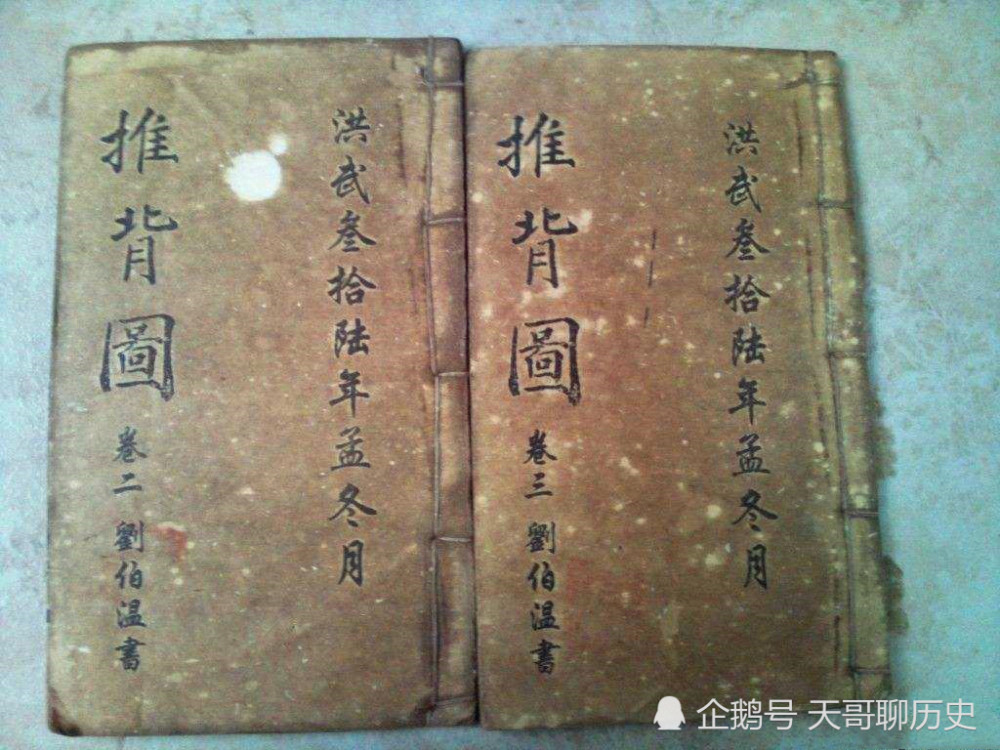 洪武叁拾陆年孟冬月
推背圖
卷二 劉伯温書
洪武叁拾陆年孟冬月
推背圖
卷三 劉伯温書
企鹅号 天哥聊历史